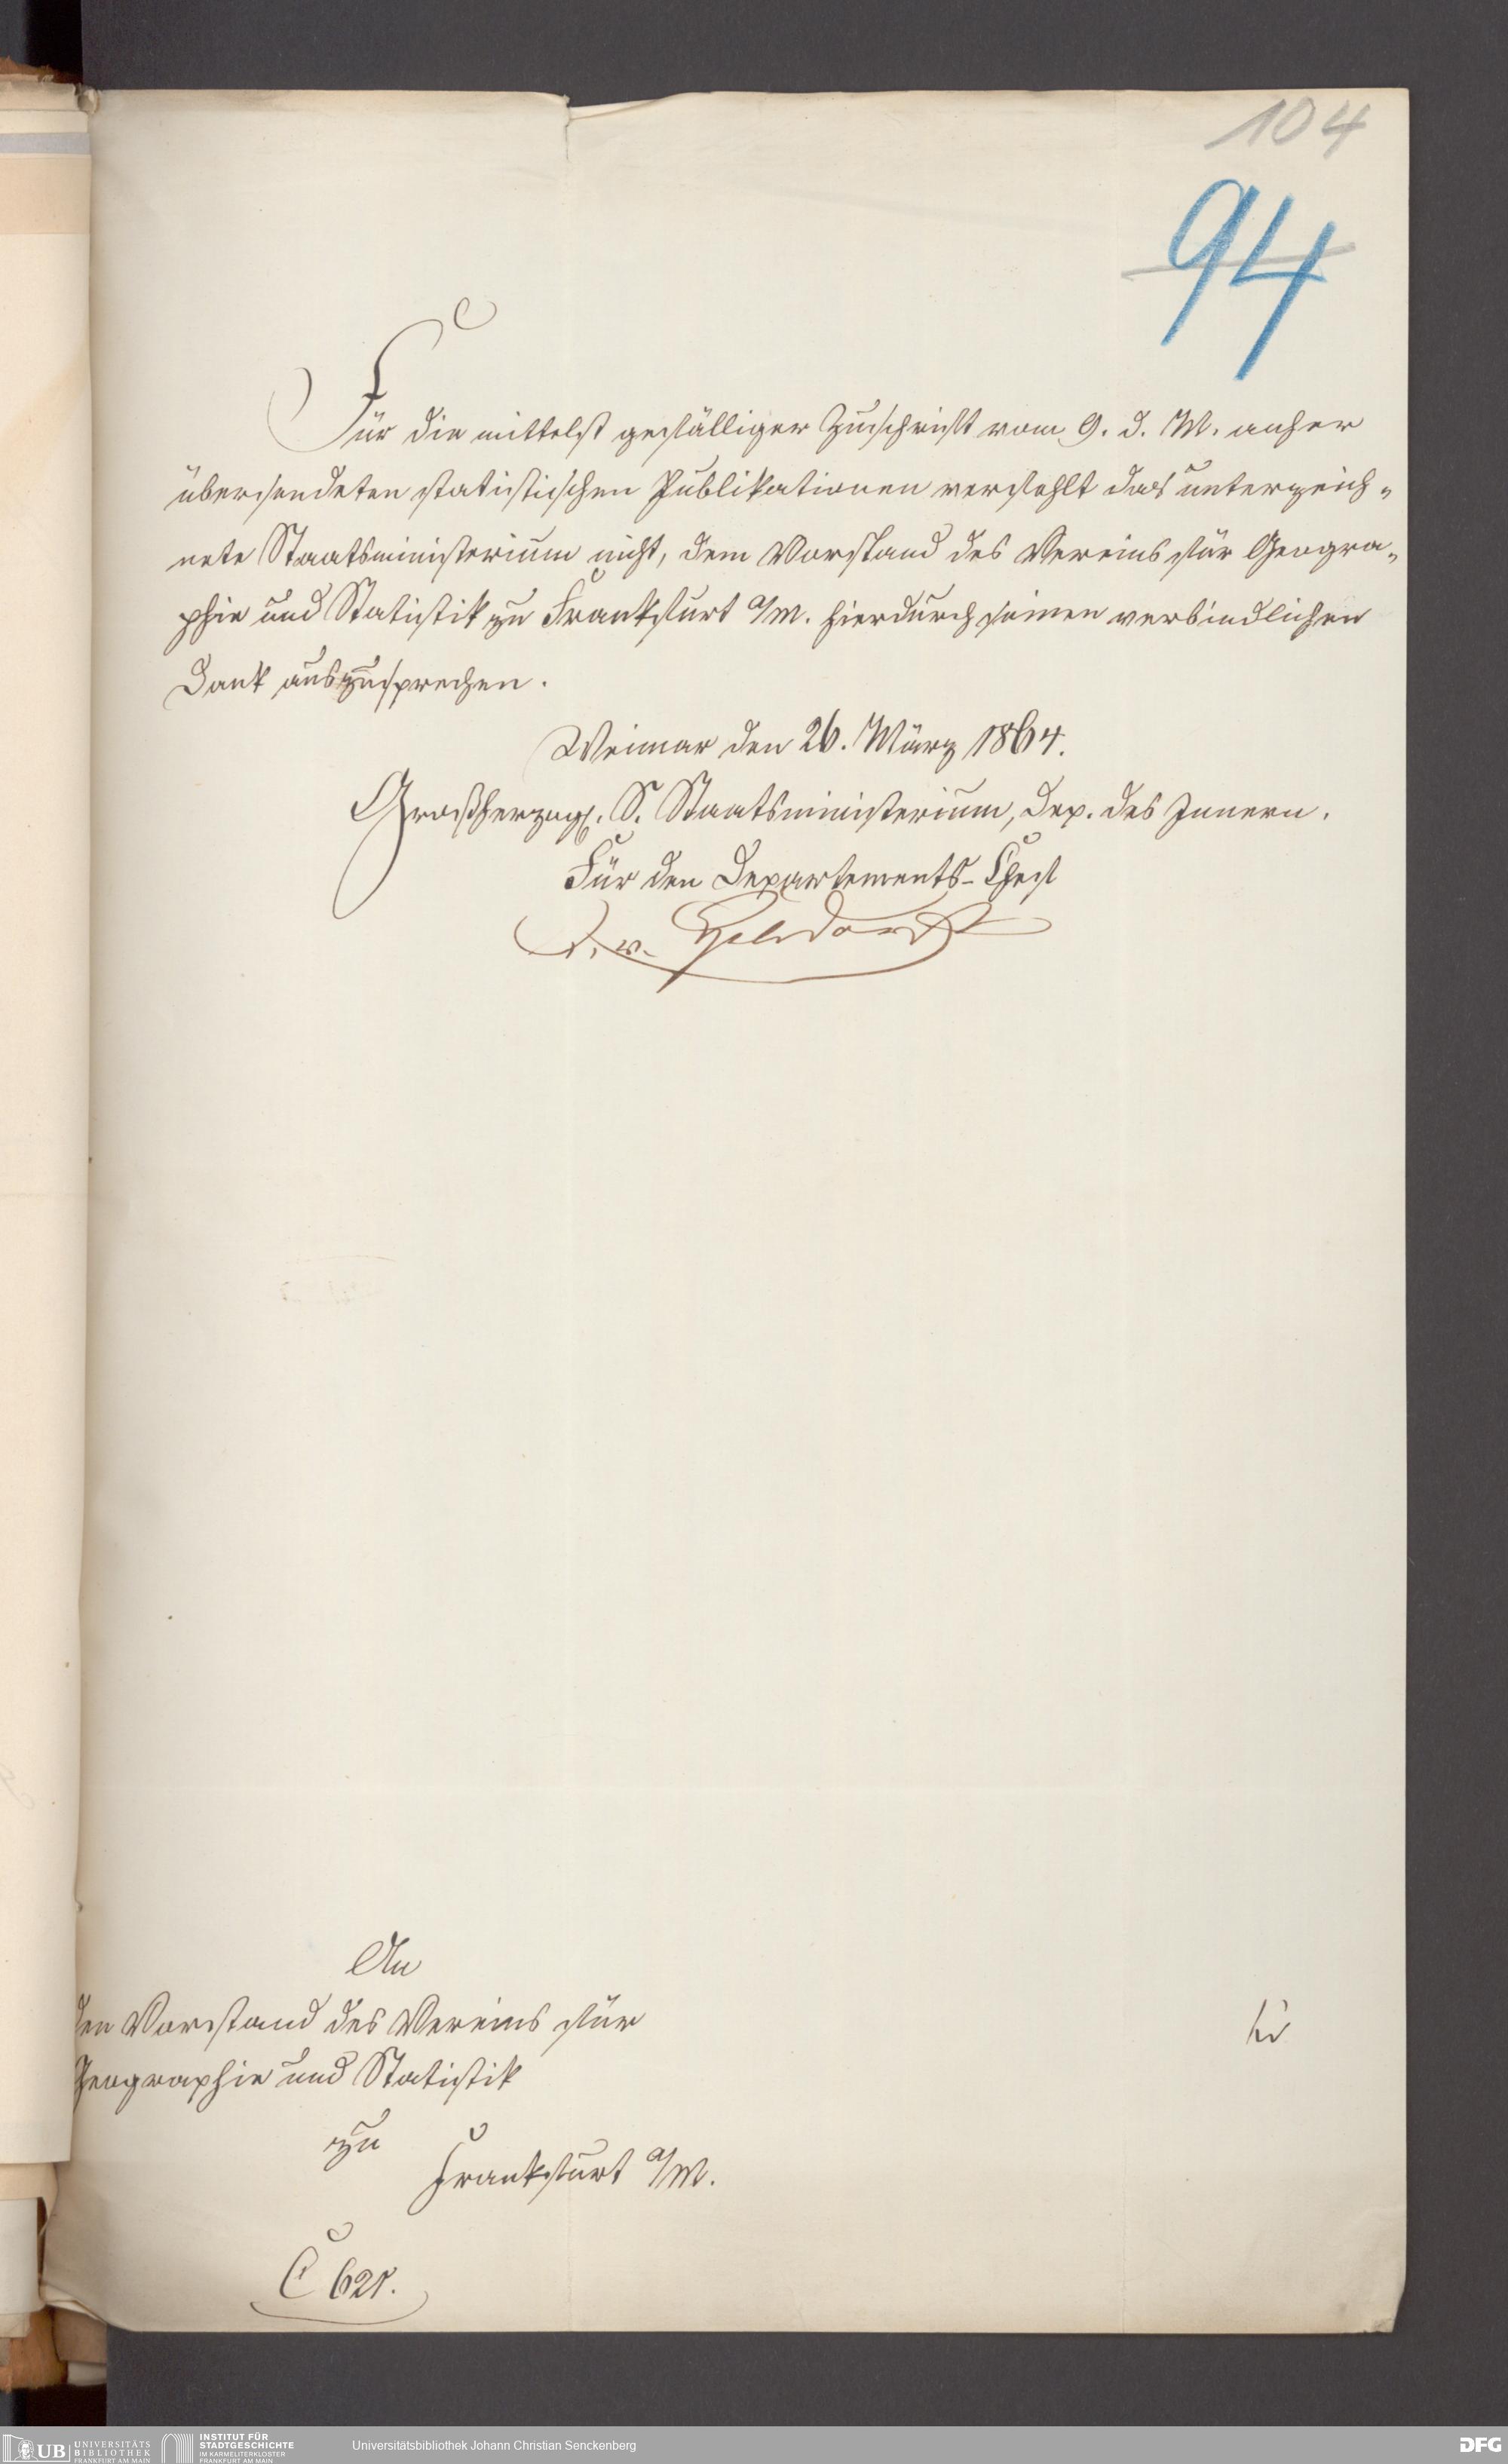 104
94
Für die mittelst gefälliger Zuschrift vom 9. d. M. anher
übersendeten statistischen Publikationen verfehlt das unterzeich-
nete Staatsministerium nicht, dem Vorstand des Vereins für Geogra-
phie und Statistik zu Frankfurt a/M. hierdurch seinen verbindlichen
Dank auszusprechen.
Weimar den 26. März 1864.
Großherzogl. S. Staatsministerium, Dep. des Innern.
Für den Departements-Chef
v. Helldorff
An
den Vorstand des Vereins für
Geographie und Statistik
zu
Frankfurt a/M.
C 621.
UB UNIVERSITÄTS
BIBLIOTHEK
FRANKFURT AM MAIN
INSTITUT FÜR
STADTGESCHICHTE
IM KARMELITERKLOSTER
FRANKFURT AM MAIN
Universitätsbibliothek Johann Christian Senckenberg
DFG